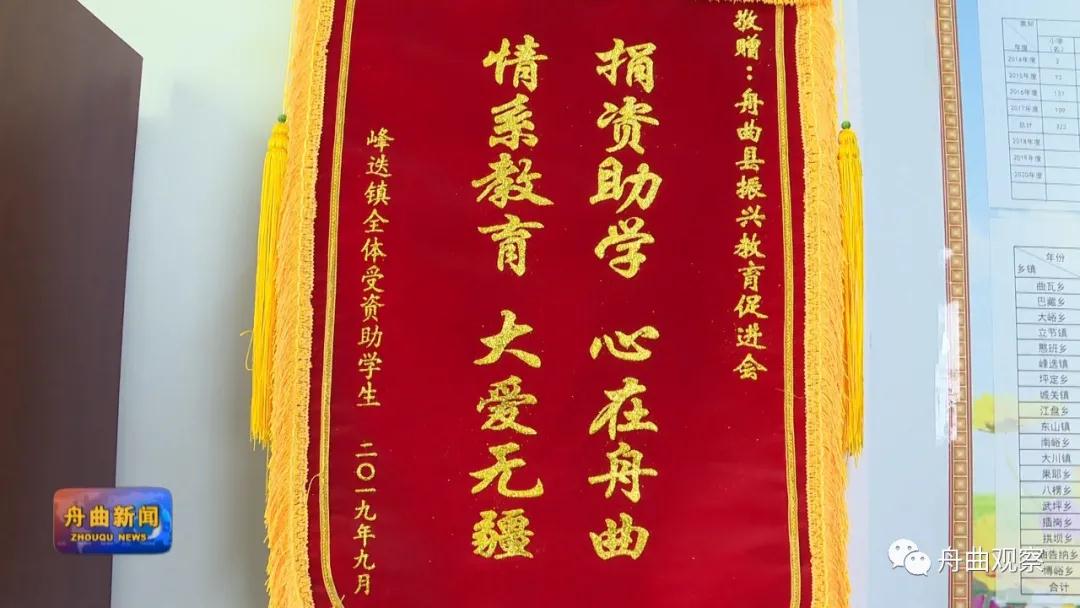 敬赠：舟曲县振兴教育促进会
捐资助学 心在舟曲
情系教育 大爱无疆
峰迭镇全体受资助学生 二〇一九年九月
舟曲新闻
ZHOUQU NEWS
年度
小学
(名)
2014年度 2
2015年度 72
2016年度 137
2017年度 109
总计 322
2018年度
2019年度
2020年度
年份
乡镇
曲瓦乡
巴藏乡
大峪乡
立节镇
憨班乡
峰迭镇
坪定乡
城关镇
江盘乡
东山镇
南峪乡
大川镇
果耶乡
八楞乡
武坪乡
插岗乡
拱坝乡
博峪乡
合计
舟曲观察